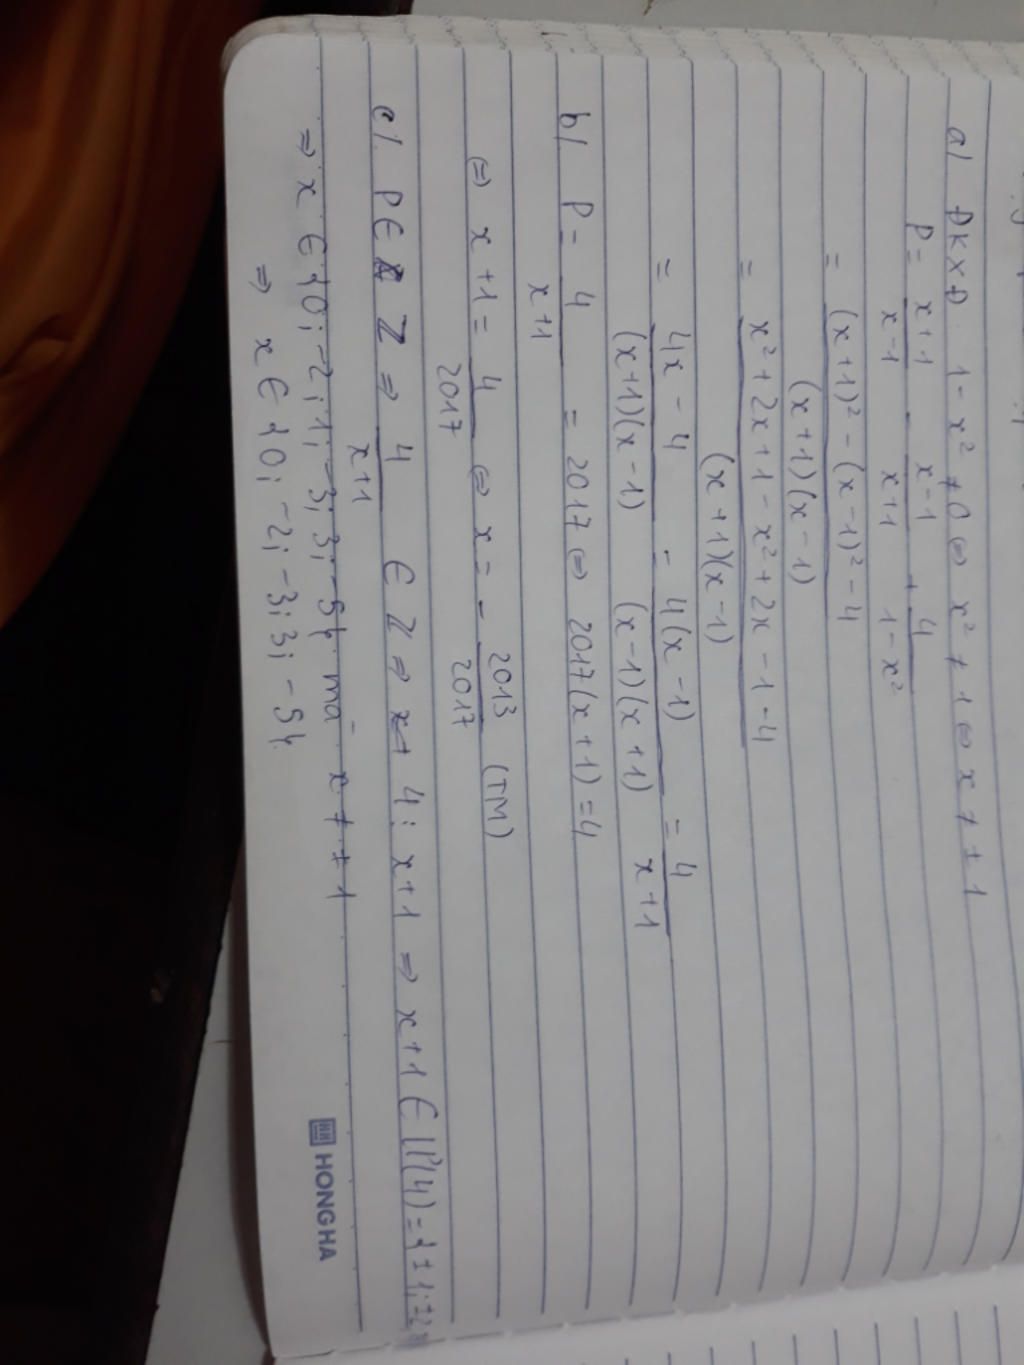 a/ ĐKXĐ 1 - x² ≠ 0 ⇔ x² ≠ 1 ⇔ x ≠ ± 1
P = (x+1)/(x-1) - (x-1)/(x+1) + 4/(1-x²)
= ((x+1)² - (x-1)² - 4)/((x+1)(x-1))
= (x² + 2x + 1 - x² + 2x - 1 - 4)/((x+1)(x-1))
= (4x - 4)/((x+1)(x-1)) = 4(x-1)/((x-1)(x+1)) = 4/(x+1)
b/ P = 4/(x+1) = 2017 ⇔ 2017(x+1) = 4
⇔ x+1 = 4/2017 ⇔ x = - 2013/2017 (TM)
c/ P ∈ Z ⇒ 4/(x+1) ∈ Z ⇒ 4 ⋮ x+1 ⇒ x+1 ∈ Ư(4) = { ± 1; ±2
⇒ x ∈ {0; -2; 1; -3; 3; -5} mà x ≠ ± 1
⇒ x ∈ {0; -2; -3; 3; -5}
HONG HA